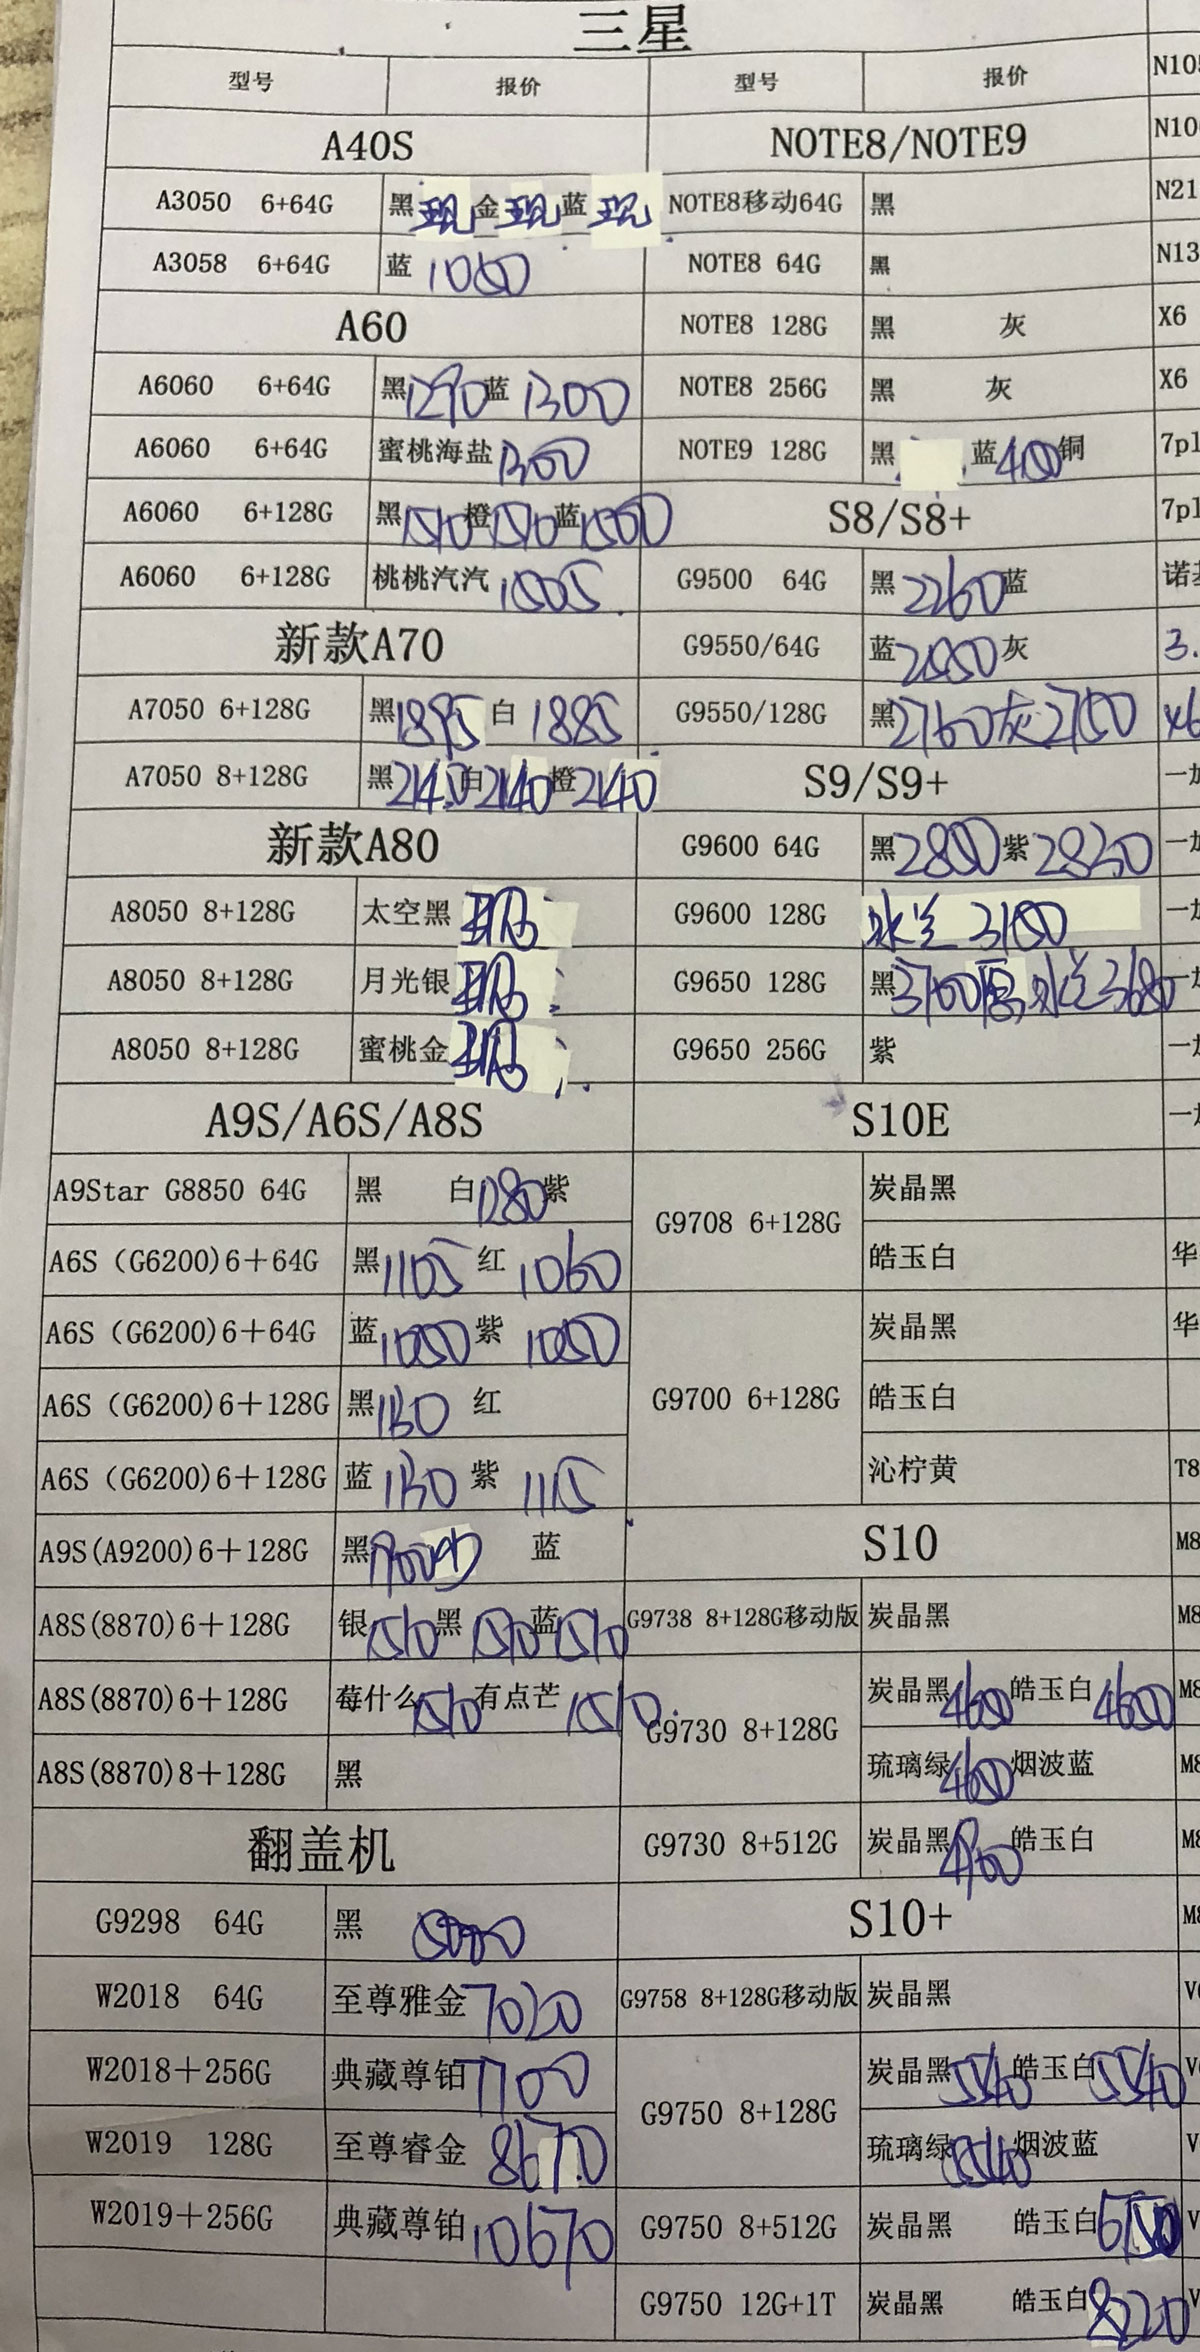 三星
型号 报价 型号 报价
A40S NOTE8/NOTE9
A3050 6+64G 黑现 金现 蓝现 NOTE8移动64G 黑
A3058 6+64G 蓝 NOTE8 64G 黑
A60 NOTE8 128G 黑 灰 X6
A6060 6+64G 黑1290 蓝1300 NOTE8 256G 黑 灰 X6
A6060 6+64G 蜜桃海盐1300 NOTE9 128G 黑 蓝 铜
A6060 6+128G 黑1510 橙1510 蓝 S8/S8+
A6060 6+128G 桃桃汽汽 G9500 64G 黑2260 蓝
新款A70 G9550/64G 蓝 灰
A7050 6+128G 黑1895 白1885 G9550/128G 黑2760 灰2750
A7050 8+128G 黑2140 白2140 橙2140 S9/S9+
新款A80 G9600 64G 黑 紫2830
A8050 8+128G 太空黑现 G9600 128G 冰兰
A8050 8+128G 月光银现 G9650 128G 黑3700 冰兰3680
A8050 8+128G 蜜桃金现 G9650 256G 紫
A9S/A6S/A8S S10E
A9Star G8850 64G 黑 白1280 紫 G9708 6+128G 炭晶黑
A6S (G6200)6+64G 黑1105 红1060 皓玉白
A6S (G6200)6+64G 蓝1050 紫1050 炭晶黑
A6S (G6200)6+128G 黑1130 红 G9700 6+128G 皓玉白
A6S (G6200)6+128G 蓝1130 紫1115 沁柠黄
A9S(A9200)6+128G 黑 蓝 S10
A8S(8870)6+128G 银1510 黑1510 蓝1510 G9738 8+128G移动版 炭晶黑
A8S(8870)6+128G 莓什么1510 有点芒1510 G9730 8+128G 炭晶黑 皓玉白
A8S(8870)8+128G 黑 琉璃绿 烟波蓝
翻盖机 G9730 8+512G 炭晶黑 皓玉白
G9298 64G 黑 S10+
W2018 64G 至尊雅金7020 G9758 8+128G移动版 炭晶黑
W2018+256G 典藏尊铂7700 G9750 8+128G 炭晶黑5540 皓玉白5540
W2019 128G 至尊睿金8670 琉璃绿5540 烟波蓝
W2019+256G 典藏尊铂10670 G9750 8+512G 炭晶黑 皓玉白
G9750 12G+1T 炭晶黑 皓玉白8220